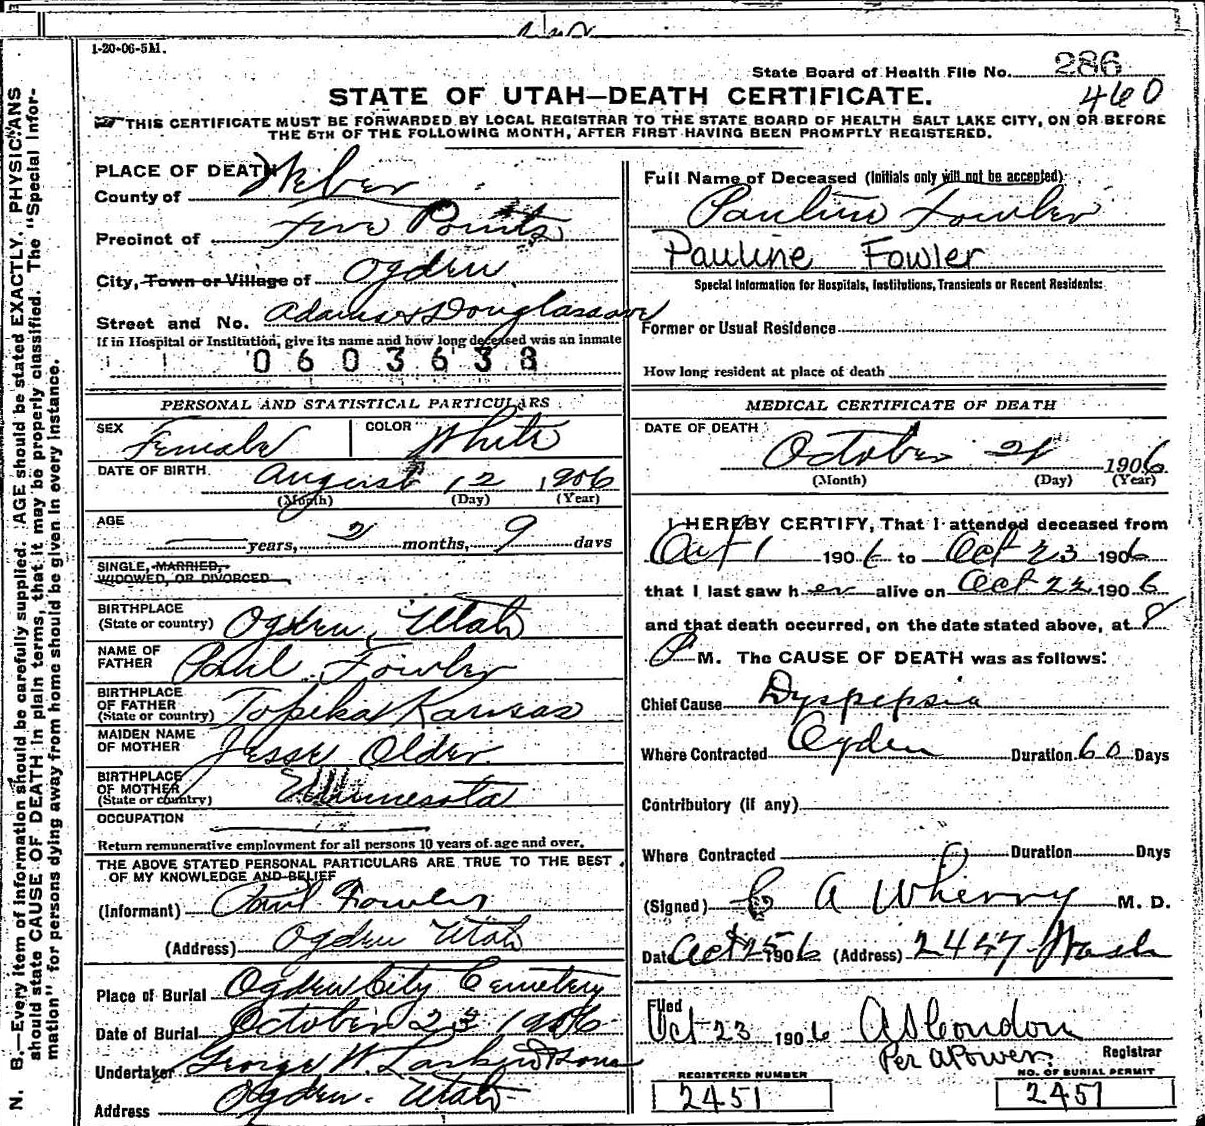 1-20-06-5M.
State Board of Health File No. 286
460
STATE OF UTAH—DEATH CERTIFICATE.
THIS CERTIFICATE MUST BE FORWARDED BY LOCAL REGISTRAR TO THE STATE BOARD OF HEALTH SALT LAKE CITY, ON OR BEFORE
THE 5TH OF THE FOLLOWING MONTH, AFTER FIRST HAVING BEEN PROMPTLY REGISTERED.
N. B.—Every item of information should be carefully supplied. AGE should be stated EXACTLY. PHYSICIANS
should state CAUSE OF DEATH in plain terms, that it may be properly classified. The "Special Infor-
mation" for persons dying away from home should be given in every instance.
PLACE OF DEATH
County of Weber
Precinct of Five Points
City, Town or Village of Ogden
Street and No. Adams & Douglas ave
If in Hospital or Institution, give its name and how long deceased was an inmate
0603638
PERSONAL AND STATISTICAL PARTICULARS
SEX Female COLOR White
DATE OF BIRTH August 12 1906
(Month) (Day) (Year)
AGE years, 2 months, 9 days
SINGLE, MARRIED,
WIDOWED, OR DIVORCED
BIRTHPLACE
(State or country) Ogden, Utah
NAME OF
FATHER Paul Fowler
BIRTHPLACE
OF FATHER
(State or country) Topeka Kansas
MAIDEN NAME
OF MOTHER Jesse Older
BIRTHPLACE
OF MOTHER
(State or country) Minnesota
OCCUPATION
Return remunerative employment for all persons 10 years of age and over.
THE ABOVE STATED PERSONAL PARTICULARS ARE TRUE TO THE BEST
OF MY KNOWLEDGE AND BELIEF
(Informant) Paul Fowler
(Address) Ogden Utah
Place of Burial Ogden City Cemetery
Date of Burial October 23 1906
Undertaker George W. Larkin & Sons
Address Ogden. Utah
Full Name of Deceased (Initials only will not be accepted)
Pauline Fowler
Pauline Fowler
Special Information for Hospitals, Institutions, Transients or Recent Residents:
Former or Usual Residence
How long resident at place of death
MEDICAL CERTIFICATE OF DEATH
DATE OF DEATH October 21 1906
(Month) (Day) (Year)
I HEREBY CERTIFY, That I attended deceased from
Oct 1 1906 to Oct 23 1906
that I last saw her alive on Oct 22 1906
and that death occurred, on the date stated above, at 8
P M. The CAUSE OF DEATH was as follows:
Chief Cause Dyspepsia
Where Contracted Ogden Duration 60 Days
Contributory (if any)
Where Contracted Duration Days
(Signed) A Wherry M. D.
Date Oct 25 1906 (Address) 2447 Wash
Filed
Oct 23 1906 A S Condon
Per A Power Registrar
REGISTERED NUMBER NO. OF BURIAL PERMIT
2451 2451